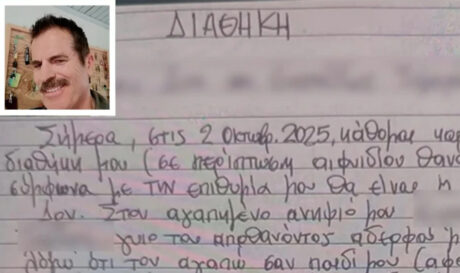 ΔΙΑΘΗΚΗ
Σήμερα, στις 2 Οκτωβ. 2025, κάθομαι και
διαθήκη μου (σε περίπτωση αιφνιδίου θανά
σύμφωνα με την επιθυμία μου θα είναι η
Στον αγαπημένο ανηψιό μου
γυιο του αποθανόντος αδερφού μ
ότι τον αγαπώ σαν παιδί μου (αφο